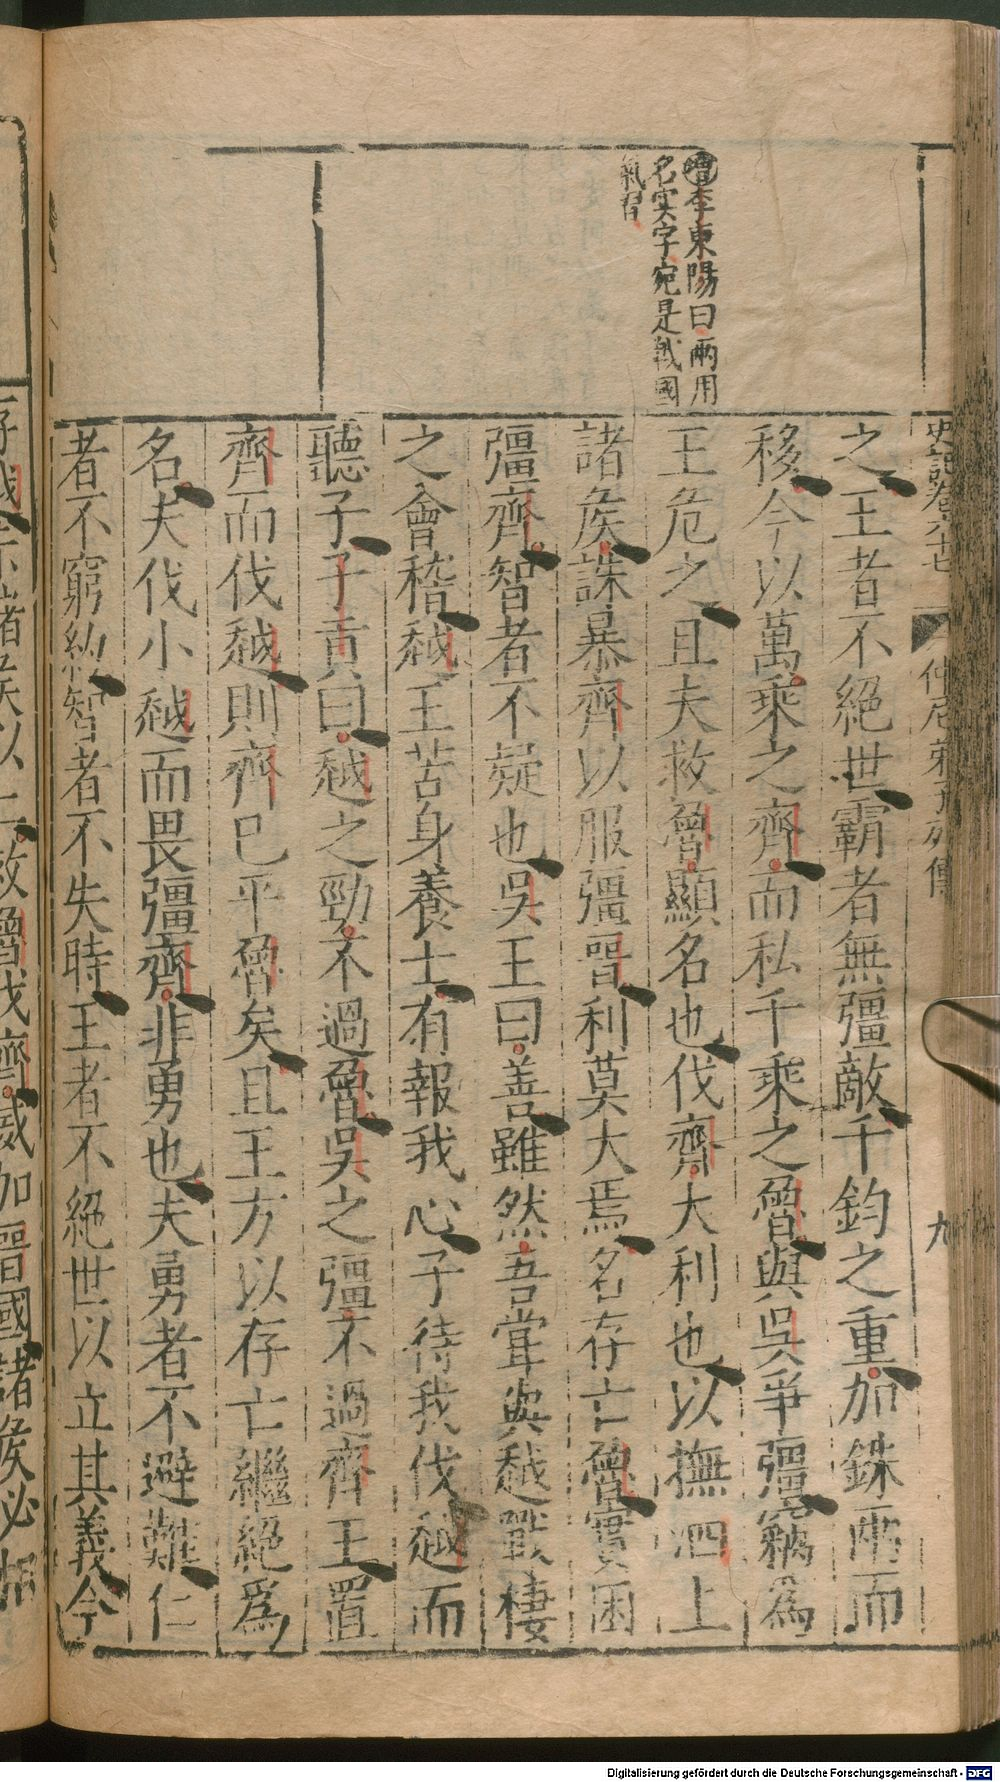 增李東陽曰兩用
名實字宛是戰國
氣習
史記卷六十七
仲尼弟子列傳
九
之王者不絕世霸者無彊敵千鈞之重加銖兩而
移今以萬乘之齊而私千乘之魯與吳爭彊竊爲
王危之且夫救魯顯名也伐齊大利也以撫泗上
諸侯誅暴齊以服彊晉利莫大焉名存亡魯實困
彊齊智者不疑也吳王曰善雖然吾甞與越戰棲
之會稽越王苦身養士有報我心子待我伐越而
聽子子貢曰越之勁不過魯吳之彊不過齊王置
齊而伐越則齊已平魯矣且王方以存亡繼絕爲
名夫伐小越而畏彊齊非勇也夫勇者不避難仁
者不窮約智者不失時王者不絕世以立其義今
存越示諸侯以仁救魯伐齊威加晉國諸侯必相
Digitalisierung gefördert durch die Deutsche Forschungsgemeinschaft - DFG